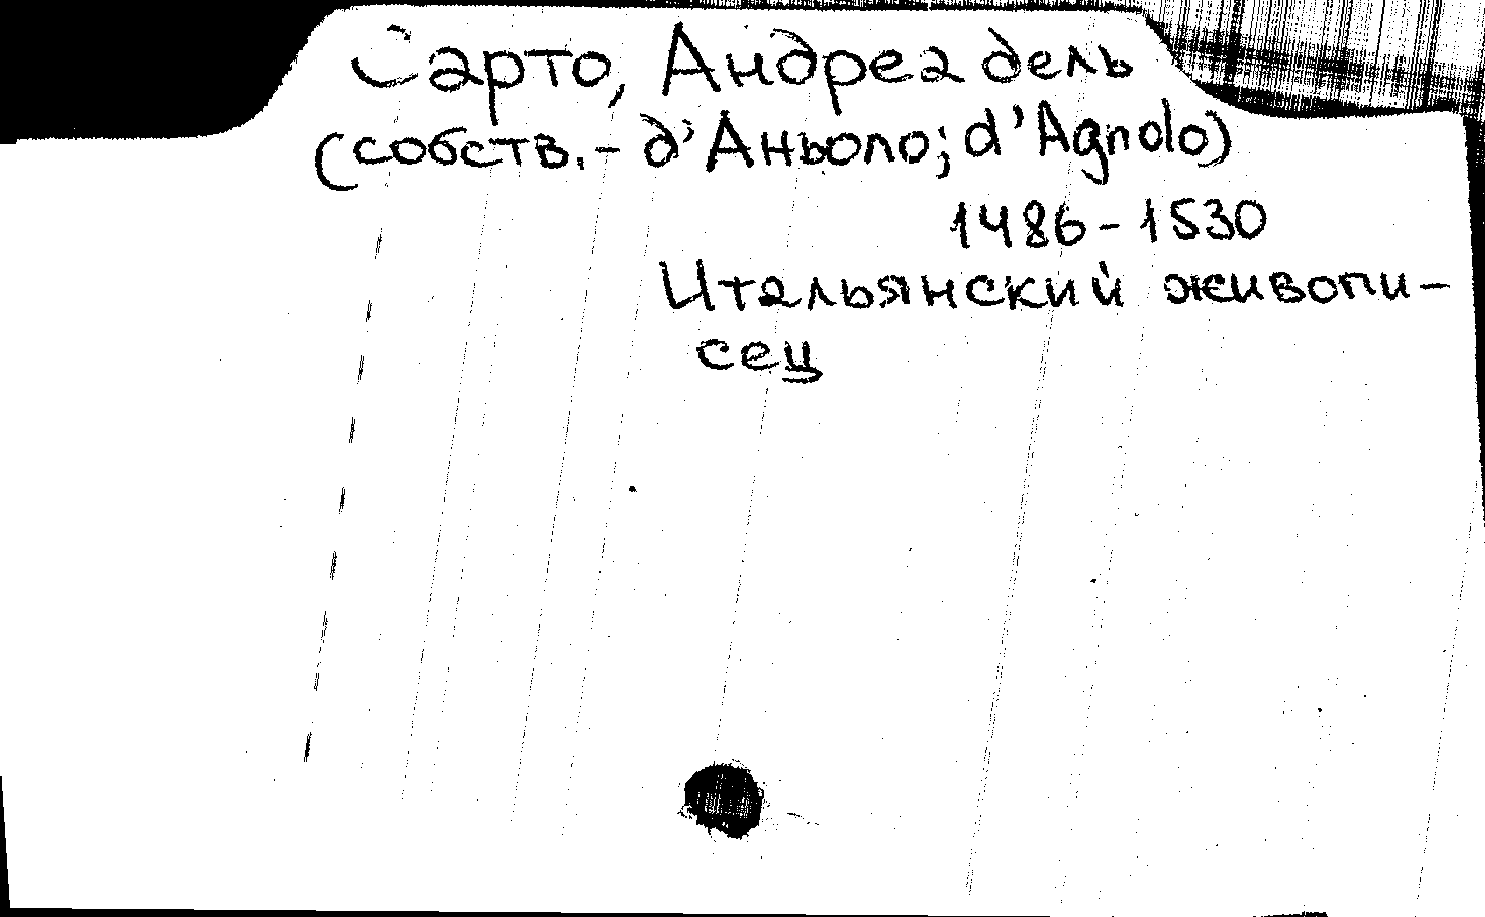 Сарто, Андреа дель
(собств. - д'Аньоло; d'Agnolo)
1486 - 1530
Итальянский живопи-
сец